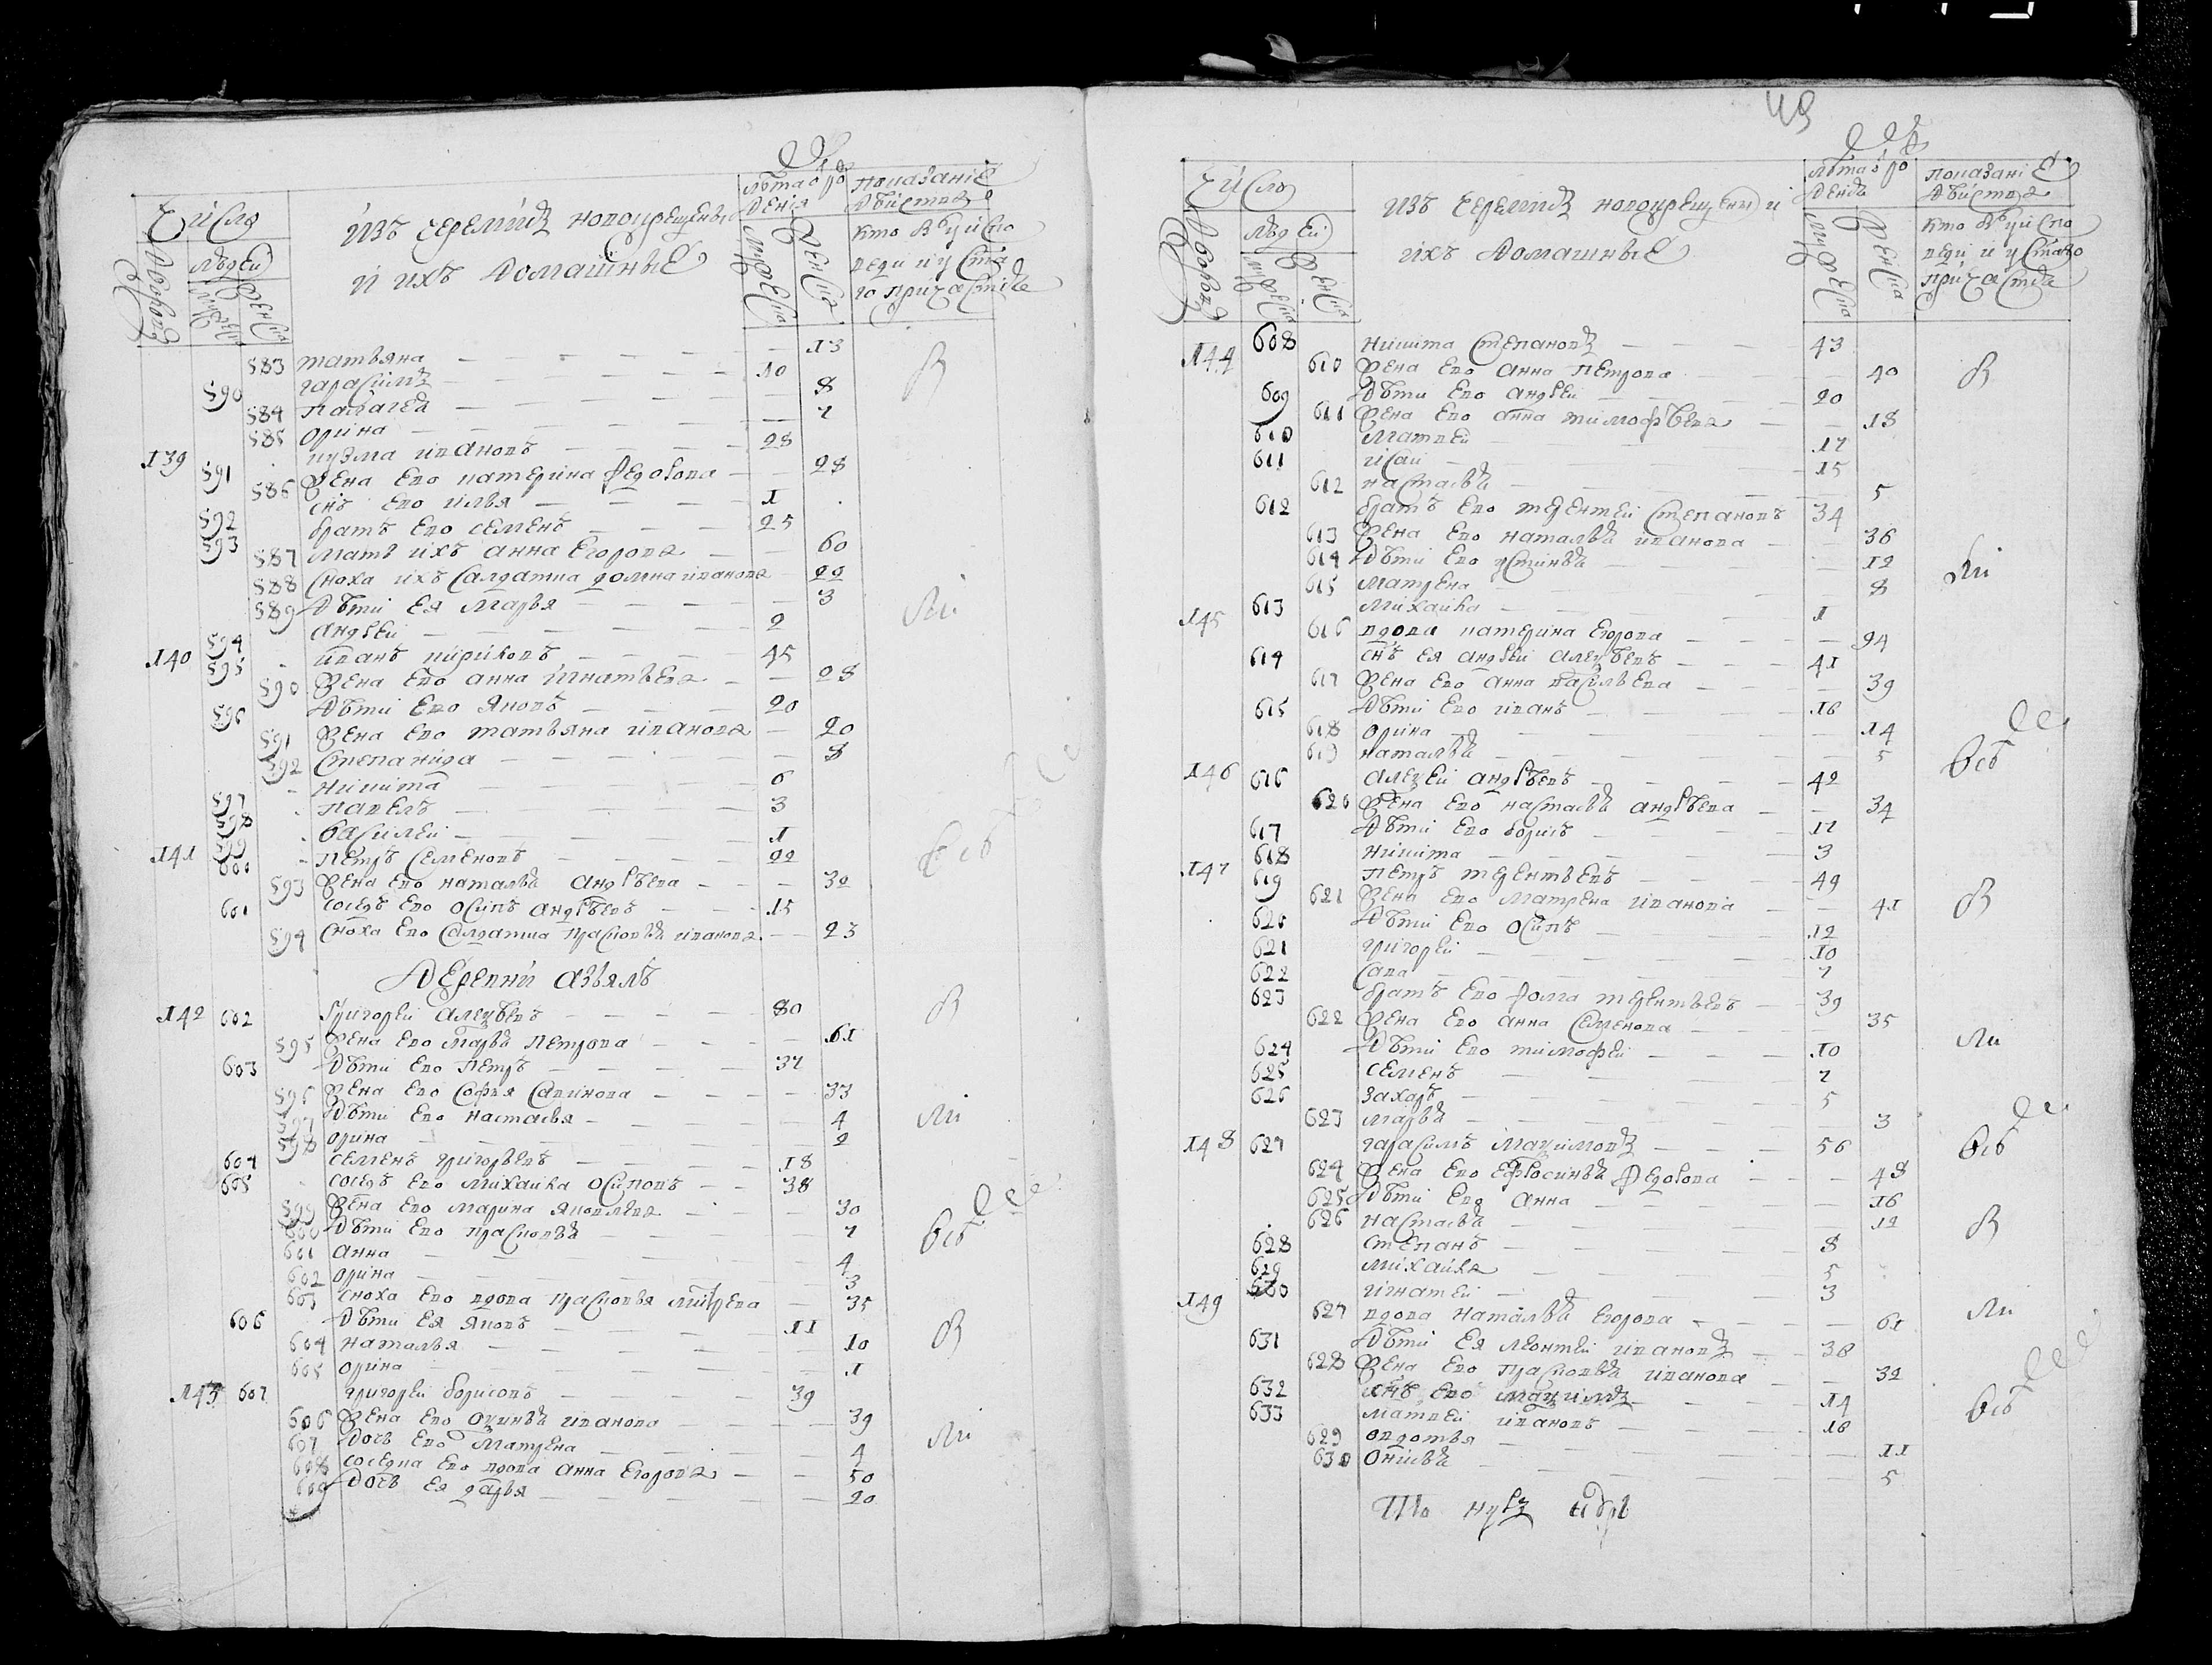 Число
Дворовъ
людей
мужеска
женска
изъ черемисъ новокрещены
и ихъ домашные
лѣта от рож
дения
мужеска
женска
показание
действа
кто был у испо
веди и у свята
го причастия
583 татьяна 13
590 гарасимъ 10
584 палагея 8
585 орина 7
139 591 кузма ивановъ 28
586 жена ево катерина федорова 28
592 снъ ево илья 1
593 братъ ево семенъ 25
587 мать ихъ анна егорова 60
588 сноха ихъ салдатка домна иванова 22
589 дѣти ея марья 3
594 андрей 2
140 595 иванъ кириловъ 45
590 жена ево анна игнатьева 28
596 дѣти ево яковъ 20
591 жена ево татьяна иванова 20
592 степанида 8
597 никита 6
598 павелъ 3
599 василей 1
141 600 петръ семеновъ 22
593 жена ево наталья андрѣева 32
601 соседъ ево осипъ андрѣевъ 15
594 сноха ево салдатка прасковья иванова 23
деревни азъялъ
142 602 григорей алексѣевъ 80
595 жена ево марья петрова 61
603 дѣти ево петръ 37
596 жена ево софья савинова 33
597 дѣти ево настасья 4
598 орина 2
604 семенъ григорьевъ 18
605 соседъ ево михайла осиповъ 38
599 жена ево марина яковлева 30
600 дѣти ево прасковья 7
601 анна 4
602 орина 3
603 сноха ево вдова прасковья дмитрева 35
606 дѣти ея яковъ 11
604 наталья 10
605 орина 1
143 607 григорей борисовъ 39
606 жена ево аксинья иванова 39
607 дочь ево матрена 4
608 соседка ево вдова анна егорова 50
609 дочь ея дарья 20
В
ли
всѣ
В
ли
всѣ
В
ли
49
Число
Дворовъ
людей
мужеска
женска
изъ черемисъ новокрещении
ихъ домашные
лѣта от ро
ждения
мужеска
женска
показание
действа
кто был у испо
веди и у святаго
причастия
144 608 никита степановъ 43
610 жена ево анна петрова 40
609 дѣти ево андрей 20
611 жена ево анна тимофѣева 18
610 матвей 17
611 исай 15
612 настасья 5
612 братъ ево терентей степановъ 34
613 жена ево наталья иванова 36
614 дѣти ево устинья 12
615 матрена 8
613 михайла 1
145 616 вдова катерина егорова 94
614 снъ ея андрей алексѣевъ 41
617 жена ево анна васильева 39
615 дѣти ево иванъ 16
618 орина 14
619 наталья 5
146 616 алексей андрѣевъ 42
620 жена ево настасья андрѣева 34
617 дѣти ево борисъ 17
618 никита 3
147 619 петръ терентьевъ 49
621 жена ево матрена иванова 41
620 дѣти ево осипъ 12
621 григорей 10
622 сава 7
623 братъ ево фома терентьевъ 39
622 жена ево анна семенова 35
624 дѣти ево тимофей 10
625 семенъ 7
626 захаръ 5
623 марья 3
148 627 гарасимъ максимовъ 56
624 жена ево ефросинья федорова 48
625 дѣти ево анна 16
626 настасья 12
628 степанъ 8
629 михайла 5
630 игнатей 3
149 627 вдова наталья егорова 61
631 дѣти ея леонтей ивановъ 38
628 жена ево прасковья иванова 32
632 снъ ево максимъ 14
633 матвей ивановъ 16
629 авдотья 11
630 онисья 5
В
ли
всѣ
В
ли
всѣ
В
ли
всѣ